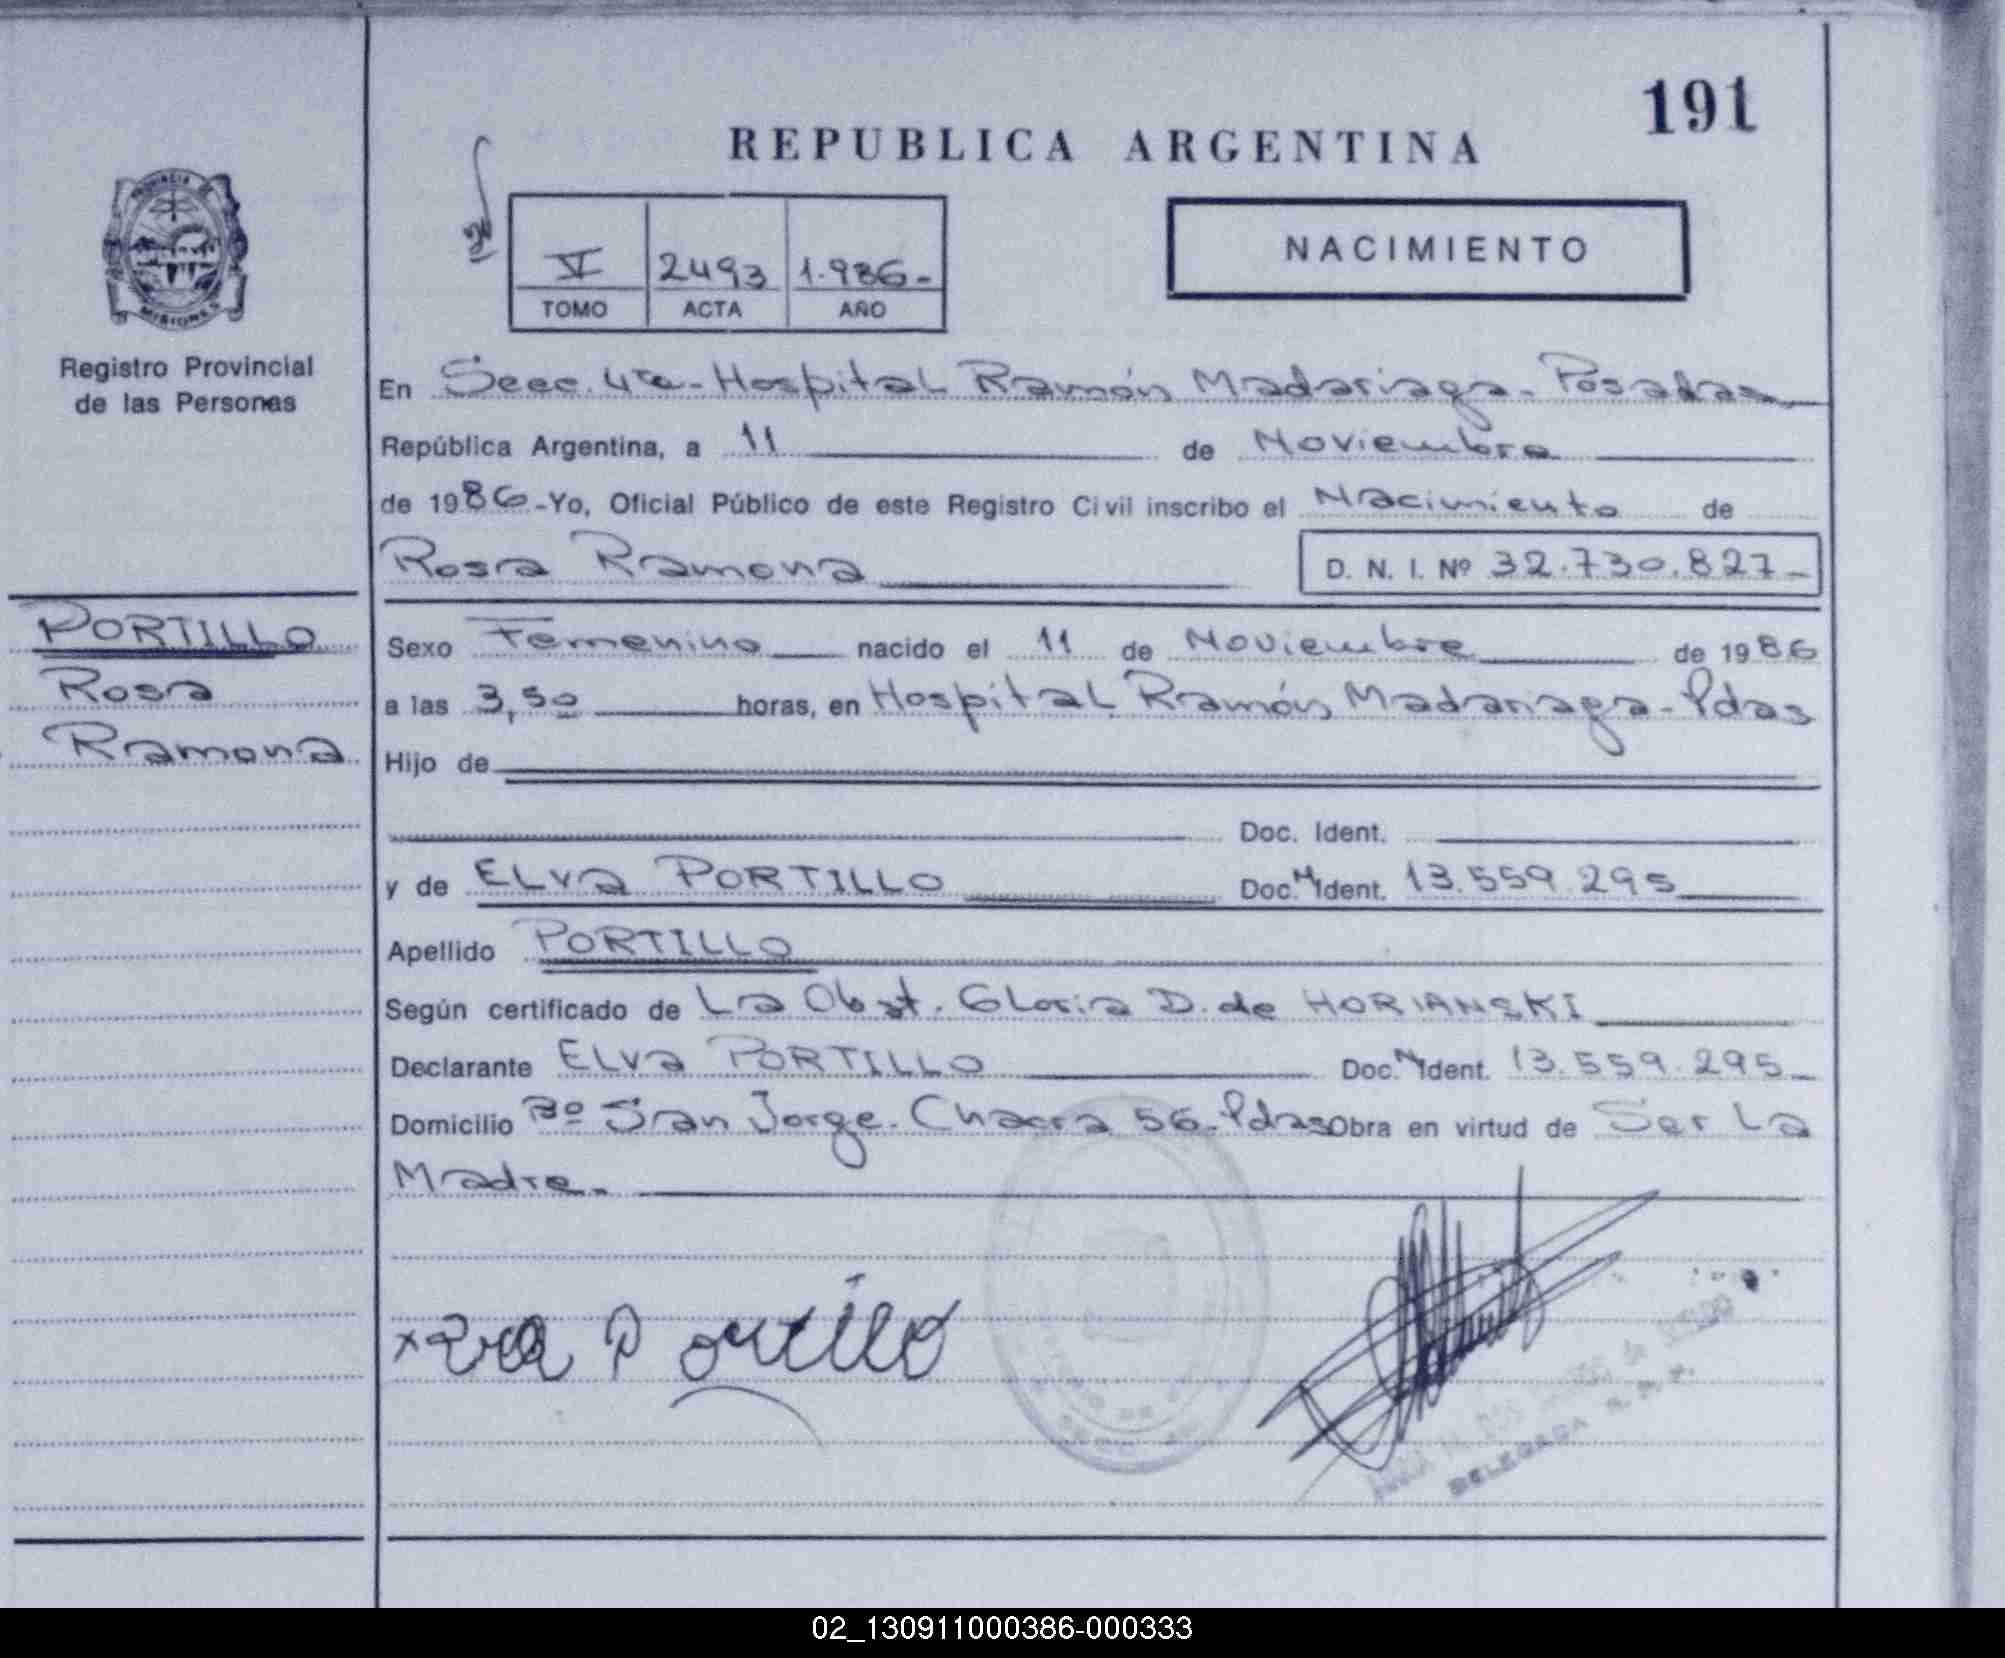 191
REPUBLICA ARGENTINA
PROVINCIA DE
MISIONES
Registro Provincial
de las Personas
VI 2493 1.986-
TOMO ACTA AÑO
NACIMIENTO
En Secc. 4ta- Hospital Ramón Madariaga- Posadas
República Argentina, a 11 de Noviembre
de 1986-Yo, Oficial Público de este Registro Civil inscribo el Nacimiento de
Rosa Ramona D. N. I. Nº 32.730.827-
PORTILLO
Rosa
Ramona
Sexo Femenino nacido el 11 de Noviembre de 1986
a las 3,50 horas, en Hospital Ramón Madariaga- Pdas
Hijo de
Doc. Ident.
y de ELVA PORTILLO Doc. Ident. 13.559.295
Apellido PORTILLO
Según certificado de La Obst. Gloria D. de HORIANSKI
Declarante ELVA PORTILLO Doc. Ident. 13.559.295-
Domicilio Bº San Jorge- Chacra 56- Pdas Obra en virtud de Ser La
Madre-
x Elva Portillo
DELEGADA R. P. P.
02_130911000386-000333